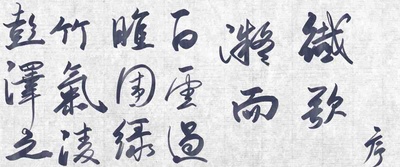 序
纖歌
凝而
白雲遏
睢園綠
竹氣凌
彭澤之